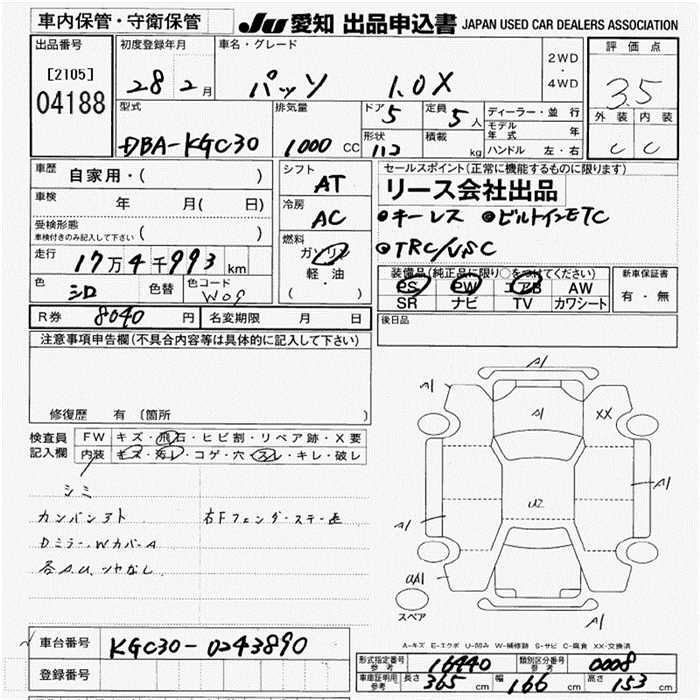 車内保管・守衛保管
JU 愛知 出品申込書 JAPAN USED CAR DEALERS ASSOCIATION
出品番号
[2105]
04188
初度登録年月
28年 2月
車名・グレード
パッソ 1.0X
2WD
・
4WD
評価点
3.5
外装 内装
C C
型式
DBA-KGC30
排気量
1000 CC
ドア 5
形状 112
定員 5人
積載 kg
ディーラー・並行
モデル年式 年
ハンドル 左・右
車歴 自家用・( )
車検 年 月( 日)
受検形態
車検付きのみ記入して下さい ( )
走行 17万4千993km
色 シロ 色替 色コード W09
シフト AT
冷房 AC
燃料
ガソリン
軽油
( ・ )
セールスポイント(正常に機能するものに限ります)
リース会社出品
●キーレス ●ビルトインETC
●TRC/VSC
装備品(純正品に限り○をつけてください)
PS PW エアB AW
SR ナビ TV カワシート
新車保証書
有・無
R券 8040円 名変期限 月 日
後日品
注意事項申告欄(不具合内容等は具体的に記入して下さい)
修復歴 有(箇所 )
検査員
記入欄
FW キズ・飛石・ヒビ割・リペア跡・X要
内装 キズ・汚レ・コゲ・穴・スレ・キレ・破レ
シミ
カンバン跡 右Fフェンダーステー歪
DミラーWカバーA
各A.U.ツヤなし
A1
A1
A1
XX
U2
A1
A1
UA1
A1
スペア
A-キズ E-エクボ U-凹み W-補修跡 S-サビ C-腐食 XX-交換済
車台番号 KGC30-0243890
登録番号
形式指定番号
参考
16440
類別区分番号
参考
0008
車庫証明用
参考
長さ 365cm 幅 166cm 高さ 153cm